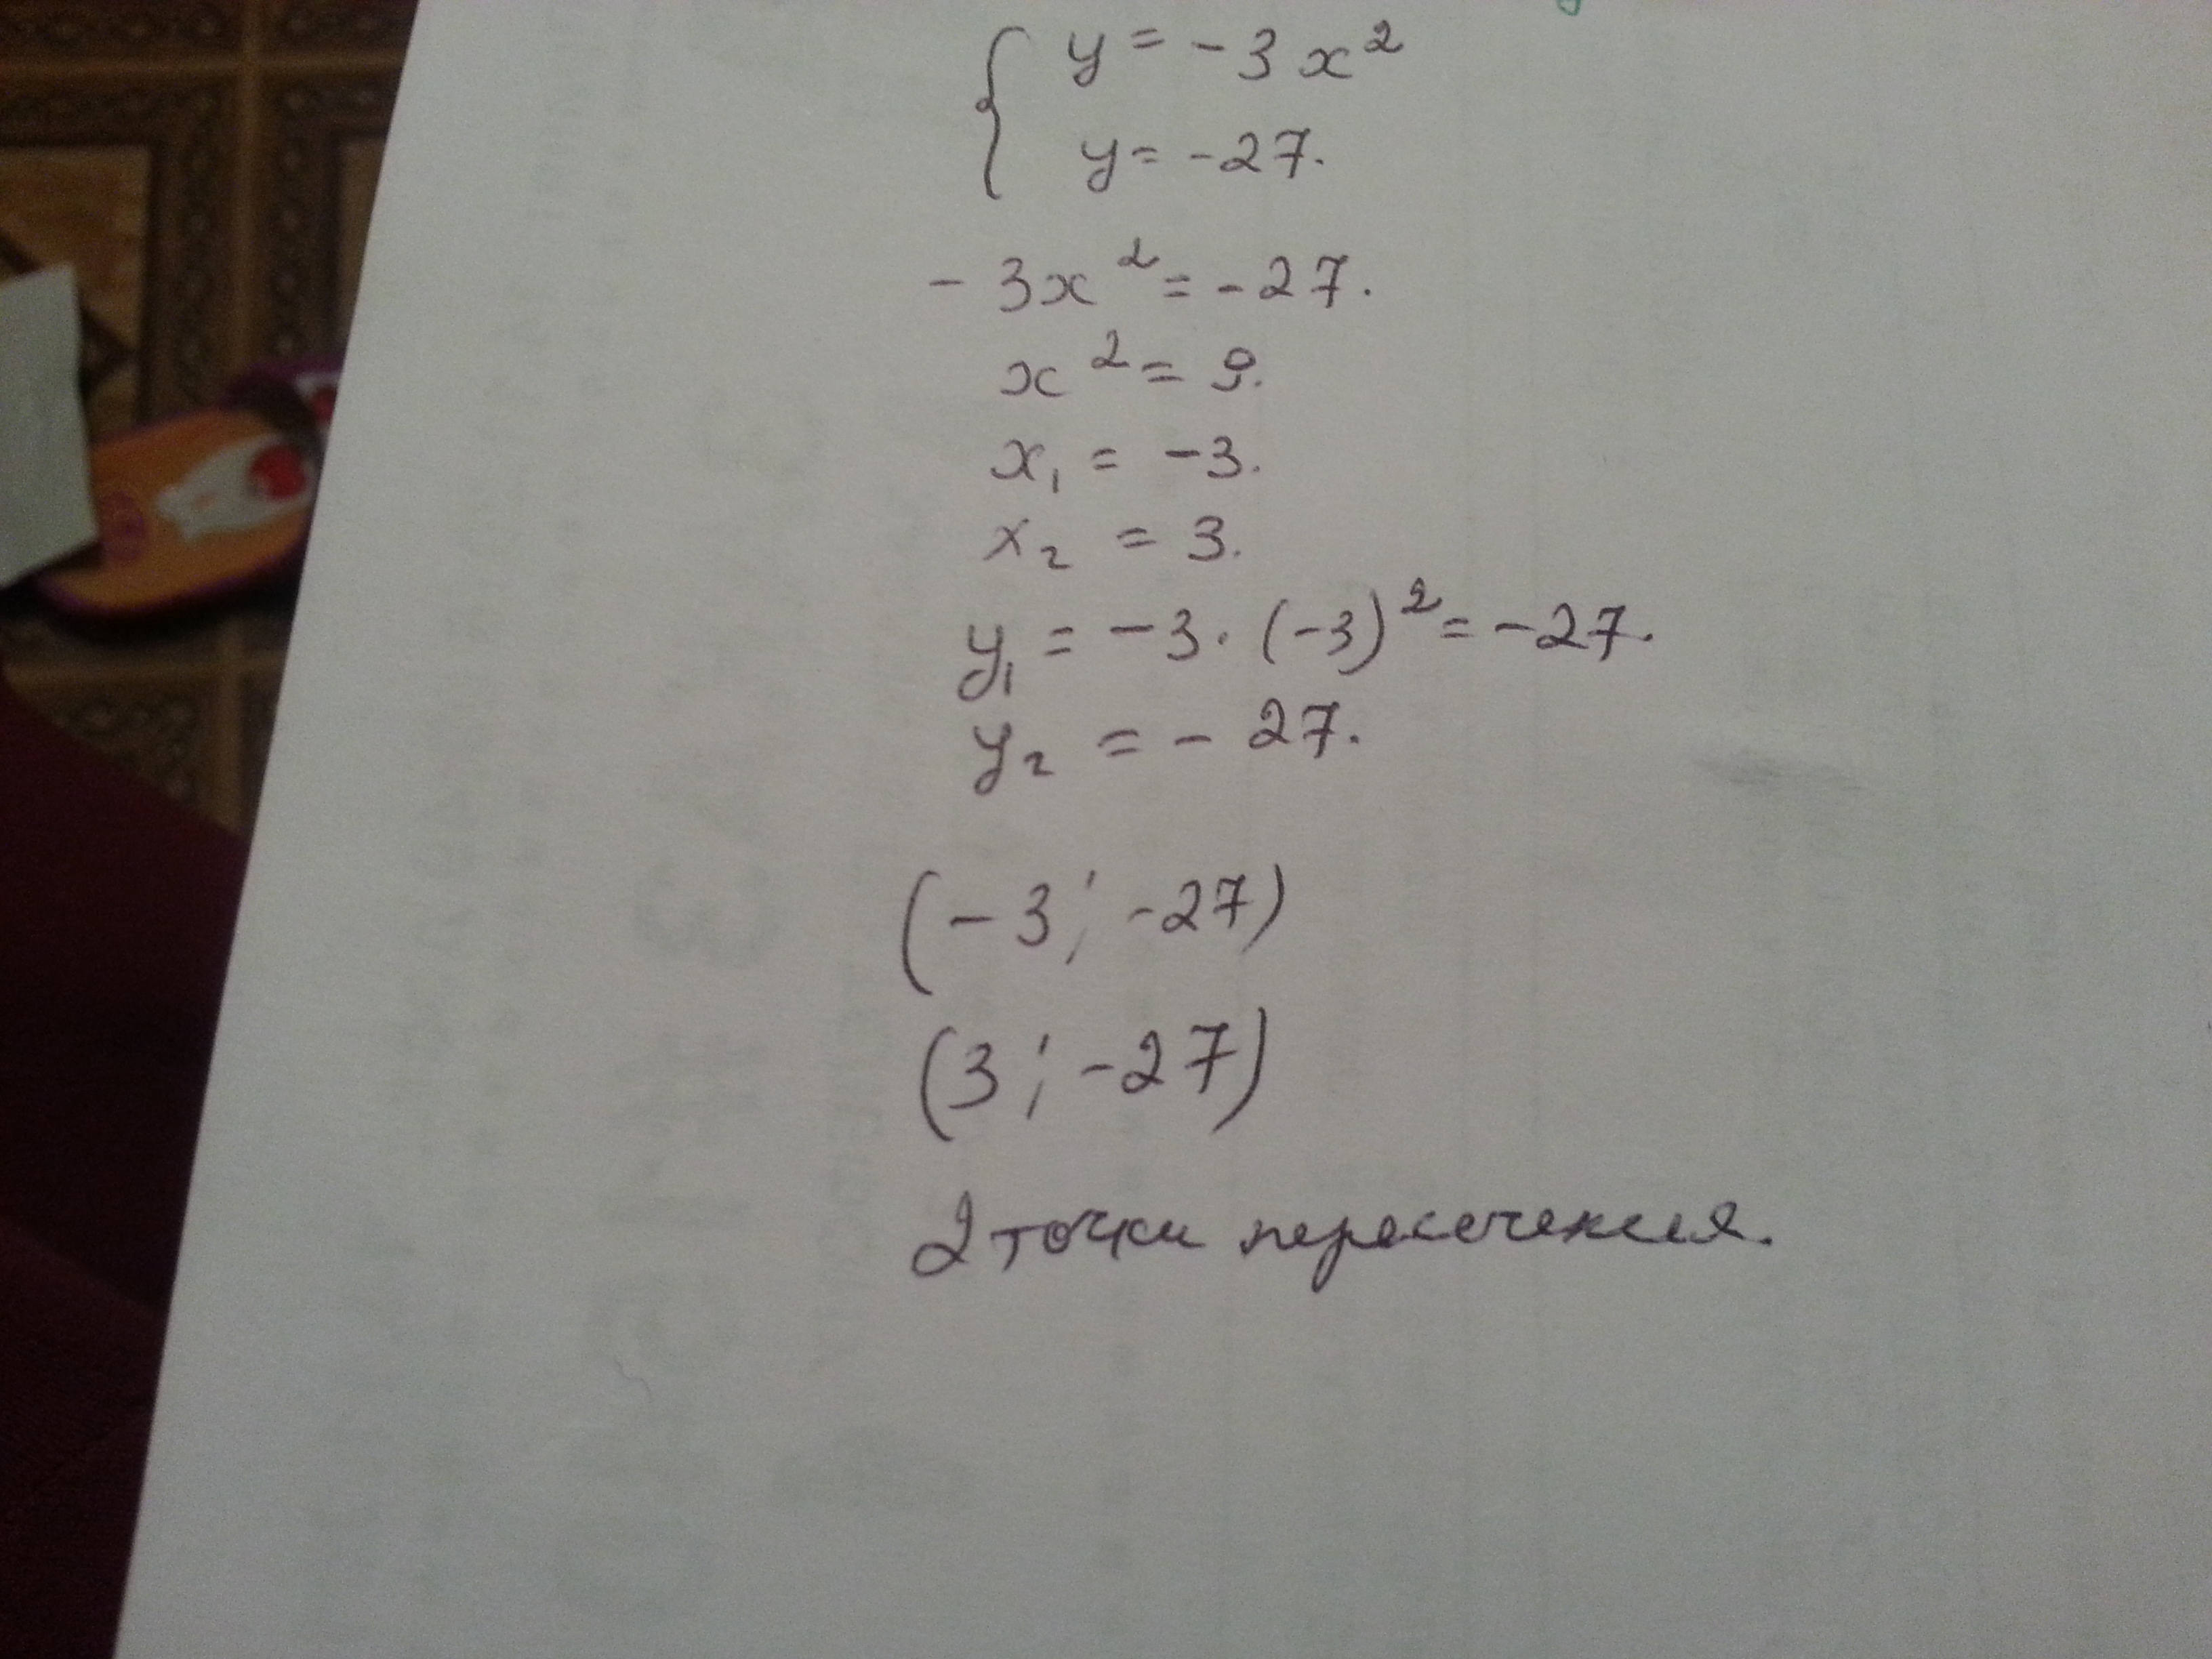 { y = -3x²
y = -27.
-3x² = -27.
x² = 9.
x₁ = -3.
x₂ = 3.
y₁ = -3 · (-3)² = -27.
y₂ = -27.
(-3; -27)
(3; -27)
2 точки пересечения.